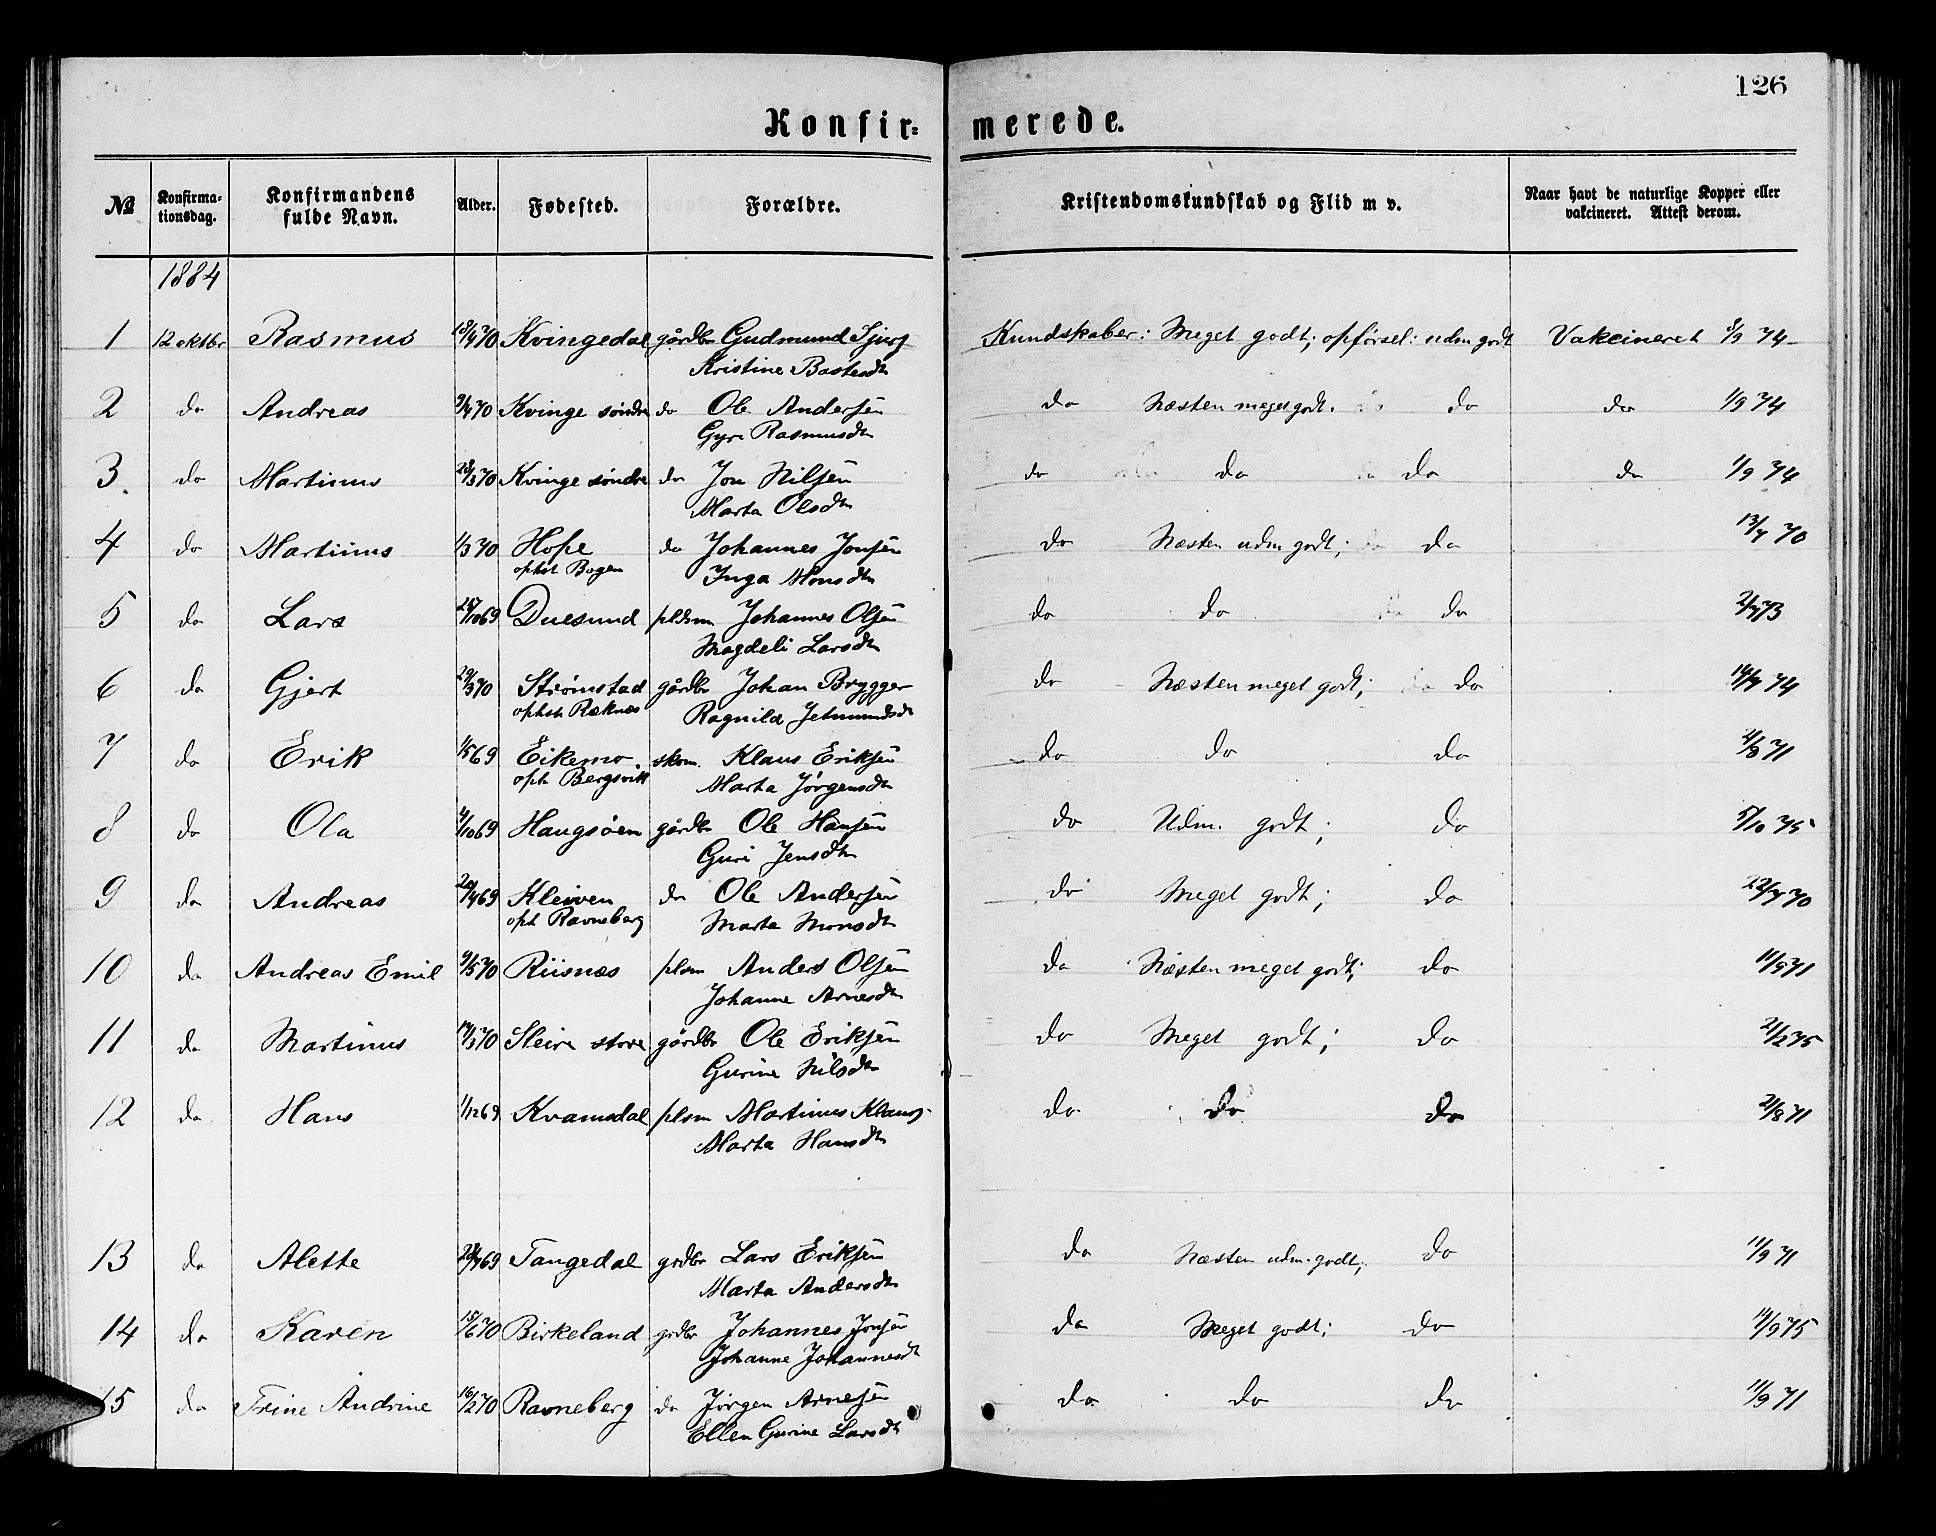 126
Konfir= merede.
№ Konfirma-tionsdag. Konfirmandens fulde Navn. Alder. Fødested. Forældre. Kristendomskundskab og Flid m v. Naar havt de naturlige Kopper eller vakcineret. Attest derom.
1884
1 12 oktbr Rasmus 18/4 70 Kvingedal gårdbr Gudmund Sjurs Kundskaber: Meget godt; opførsel: udm godt Vakcineret 8/9 74
Kristine Bastesdtr
2 do Andreas 9/4 70 Kvinge søndre do Ole Andersen do Næsten meget godt. do do 1/9 74
Gyri Rasmusdtr
3. do Martinus 28/3 70 Kvinge søndre do Jon Nilsen do do do do 1/9 74
Marta Olsdtr
4 do Martinus 1/3 70 Hope do Johannes Jonsen do Næsten udm godt; do 13/7 70
opfst Bogen Inga Monsdtr
5 do Lars 27/10 69 Duesund pldsm Johannes Olsen do do do 2/7 73
Magdeli Larsdtr
6 do Gjert 29/3 70 Strømstad gårdbr Johan Brygger do Næsten meget godt; do 14/7 74
opfst Ræknes Ragnild Jetmundsdt
7 do Erik 1/5 69 Eikemo skom. Klaus Eriksen do do do 4/8 71
opf. Bergsvik Marta Jørgensdtr
8 do Ola 4/10 69 Haugsøen gårdbr Ole Hansen do Udm. godt; do 5/10 75
Guri Jensdtr
9 do Andreas 20/4 69 Kleiven do Ole Andersen do Meget godt; do 22/7 70
opf. Ravneberg Marta Monsdtr
10 do Andreas Emil 9/5 70 Riisnæs plsm Anders Olsen do Næsten meget godt; do 11/9 71
Johanne Arnesdtr
11 do Martinus 14/3 70 Sleire store gårdbr Ole Eriksen do Meget godt; do 21/2 75
Gurine Nilsdtr
12 do Hans 1/12 69 Kvamsdal plsm Martinus Klaus do do do 21/8 71
Marta Hansdtr
13 do Alette 28/4 69 Tangedal grdbr Lars Eriksen do Næsten udm. godt; do 11/9 71
Marta Andersdtr
14 do Karen 15/6 70 Birkeland grdbr Johannes Jonsen do Meget godt; do 14/9 75
Johanne Johannesdt
15 do Trine Andrine 16/2 70 Ravneberg do Jørgen Arnesen do do do 11/9 71
Ellen Gurine Larsdtr